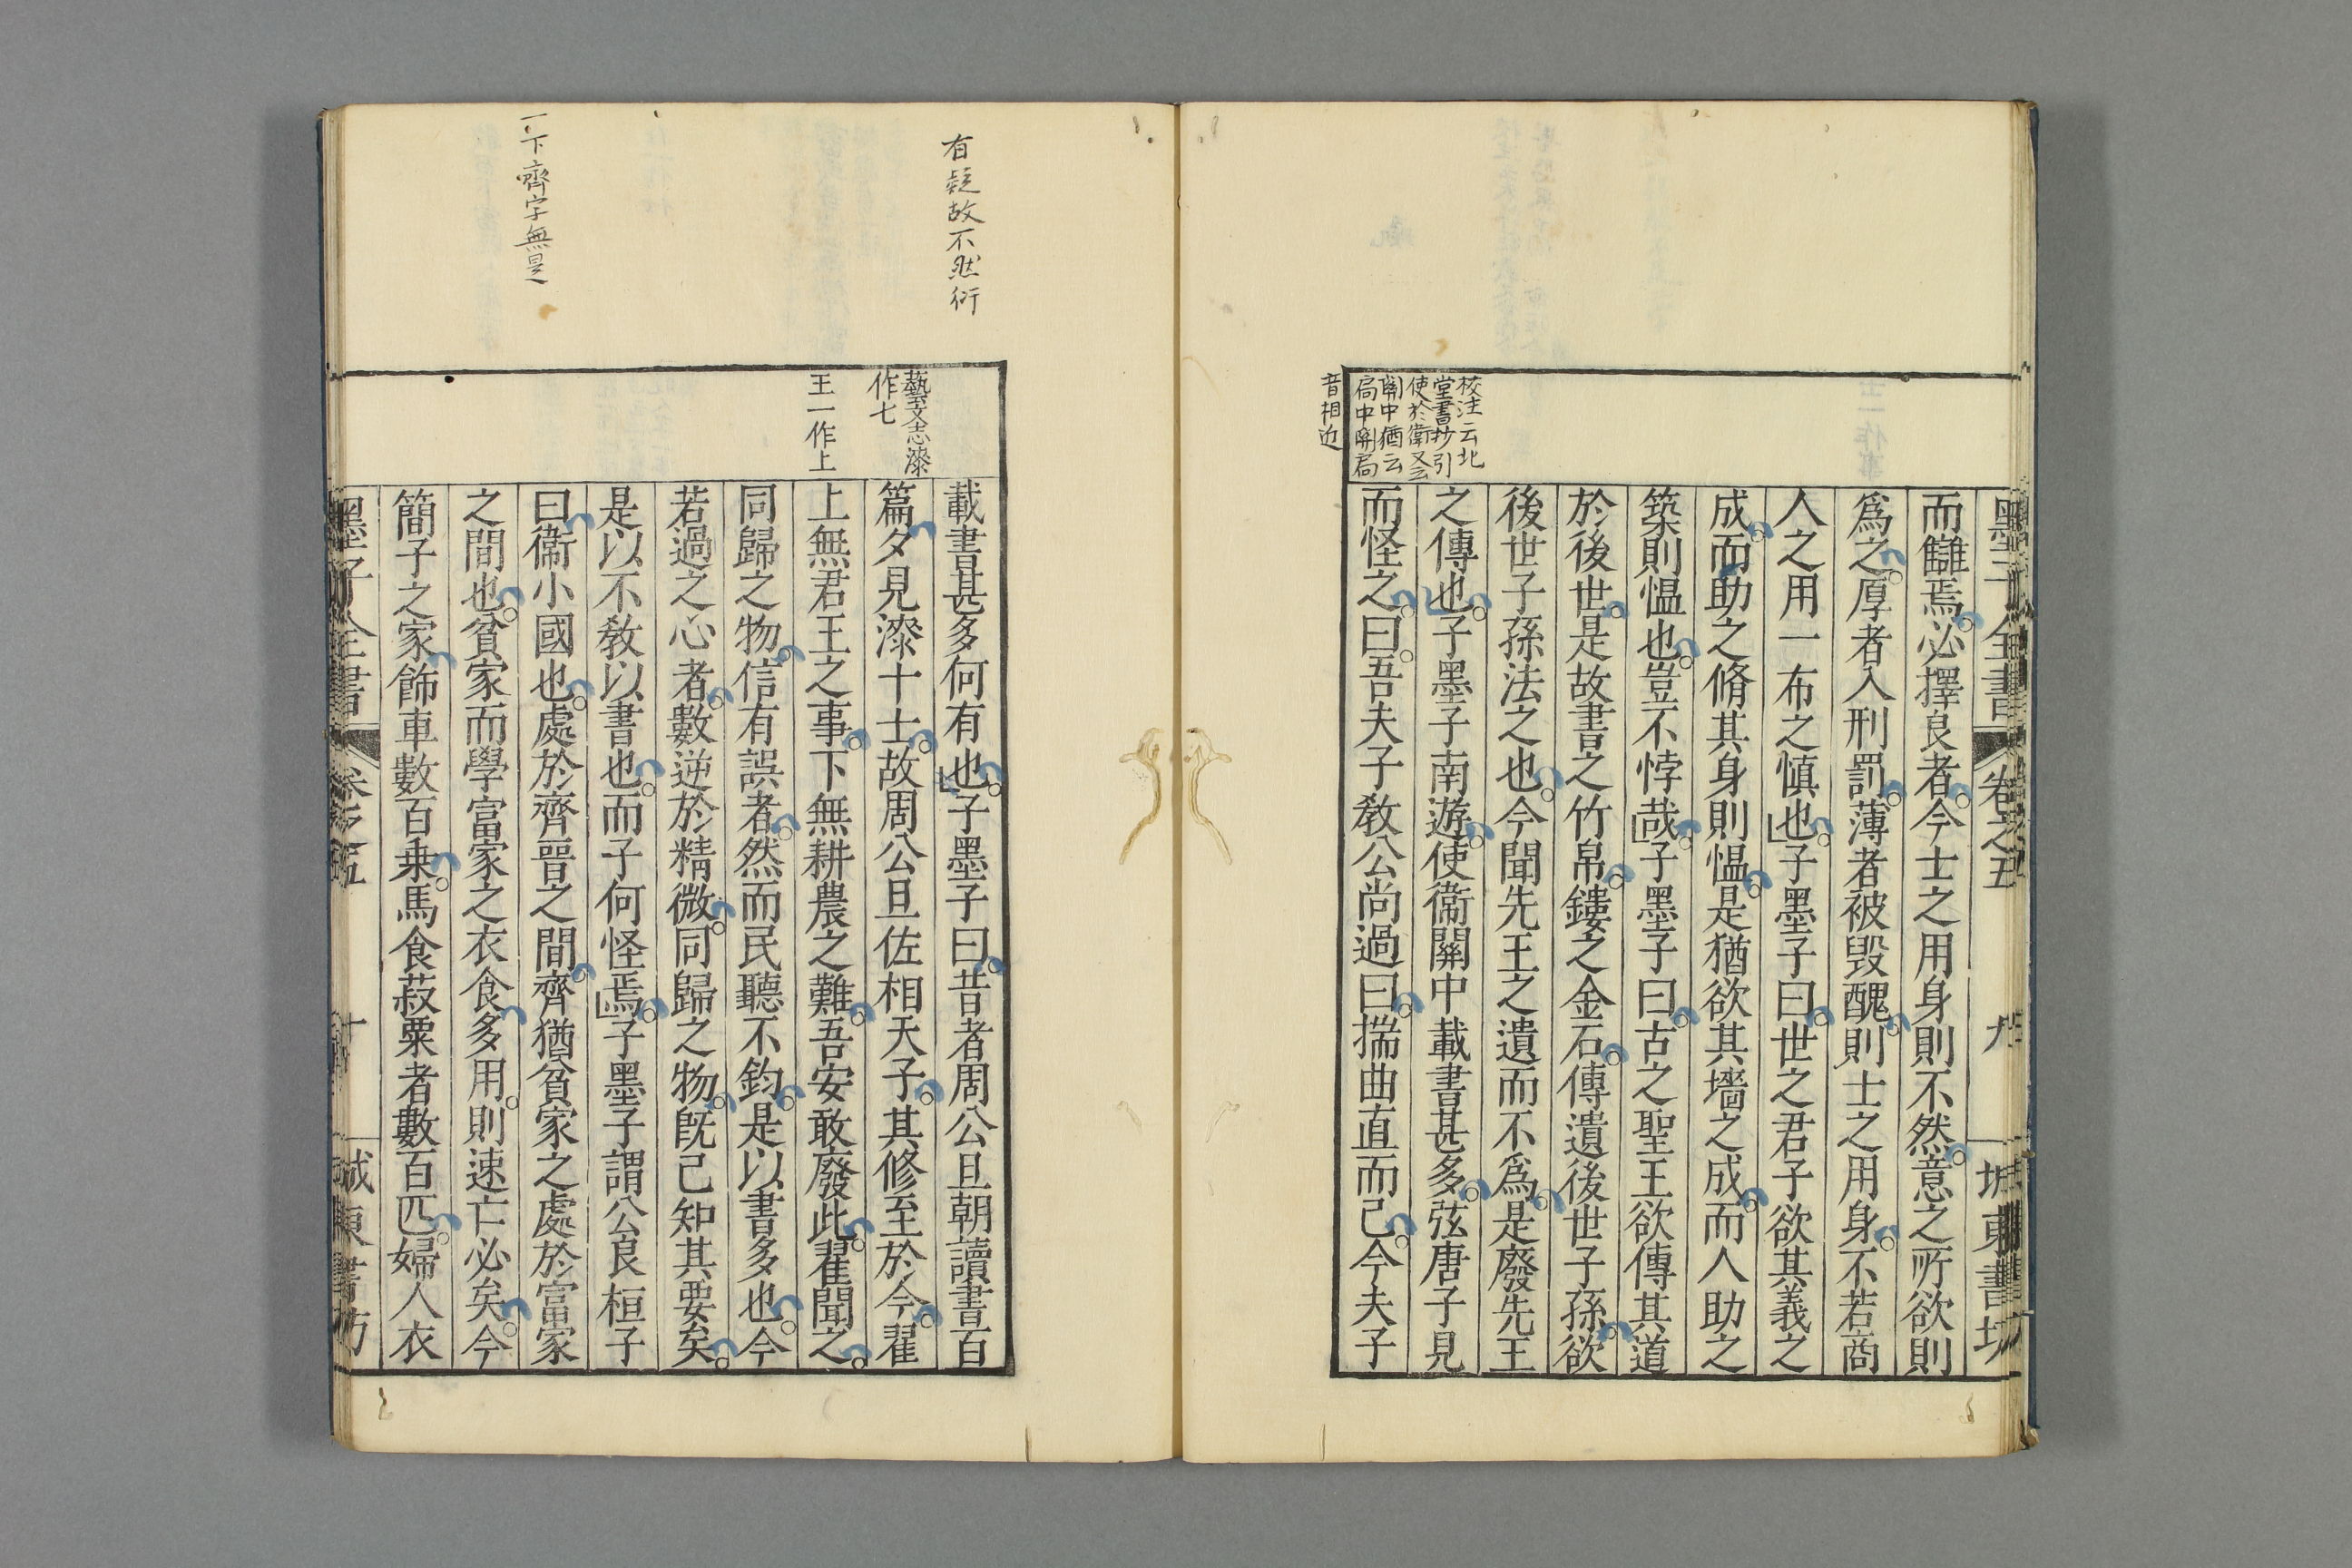 墨子全書 卷之五 九 城東書坊
而讎焉必擇良者今士之用身則不然意之所欲則
爲之厚者入刑罰薄者被毀醜則士之用身不若商
人之用一布之慎也子墨子曰世之君子欲其義之
成而助之脩其身則慍是猶欲其墻之成而人助之
築則慍也豈不悖哉子墨子曰古之聖王欲傳其道
於後世是故書之竹帛鏤之金石傳遺後世子孫欲
後世子孫法之也今聞先王之遺而不爲是廢先王
之傳也子墨子南遊使衞關中載書甚多弦唐子見
而怪之曰吾夫子敎公尚過曰揣曲直而己今夫子
校注云北
堂書抄引
使於衛又云
關中猶云
扃中關扃
音相近
有疑故不然衍
藝文志漆
作七
王一作上
一下齊字無是
載書甚多何有也子墨子曰昔者周公旦朝讀書百
篇夕見漆十士故周公旦佐相天子其修至於今翟
上無君王之事下無耕農之難吾安敢廢此翟聞之
同歸之物信有誤者然而民聽不鈞是以書多也今
若過之心者數逆於精微同歸之物旣己知其要矣
是以不敎以書也而子何怪焉子墨子謂公良桓子
曰衞小國也處於齊晉之間齊猶貧家之處於富家
之間也貧家而學富家之衣食多用則速亡必矣今
簡子之家飾車數百乗馬食菽粟者數百匹婦人衣
墨子全書 卷之五 十 城東書坊